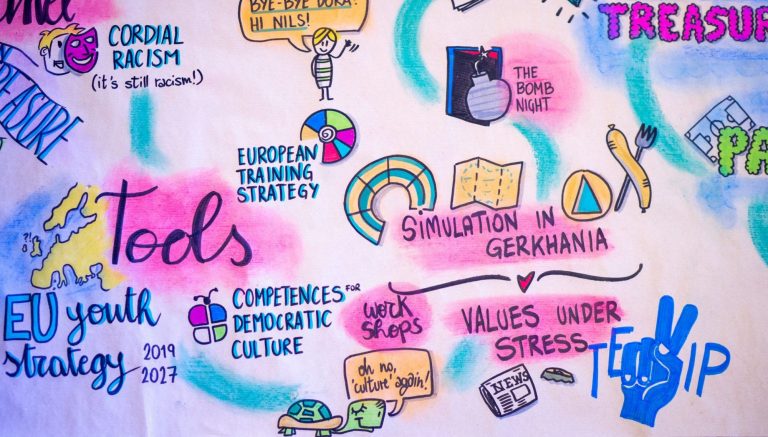 BYE-BYE DORA!
HI NILS!
TREASUR
CORDIAL
RACISM
(it's still racism!)
EASURE
THE
BOMB
NIGHT
EUROPEAN
TRAINING
STRATEGY
PA
Tools
SIMULATION IN
GERKHANIA
?!
EU youth
strategy 2019
2027
COMPETENCES FOR
DEMOCRATIC
CULTURE
work
shops
VALUES UNDER
STRESS
oh no,
'culture' again!
NEWS
TE IP